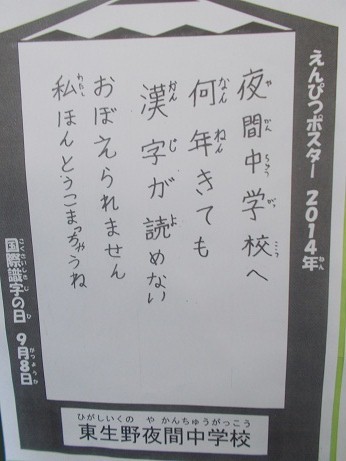 えんぴつポスター 2014年
夜間中学校へ
何年きても
漢字が読めない
おぼえられません
私ほんとうこまっちゃうね
国際識字の日 9月8日
ひがしいくの やかんちゅうがっこう
東生野夜間中学校